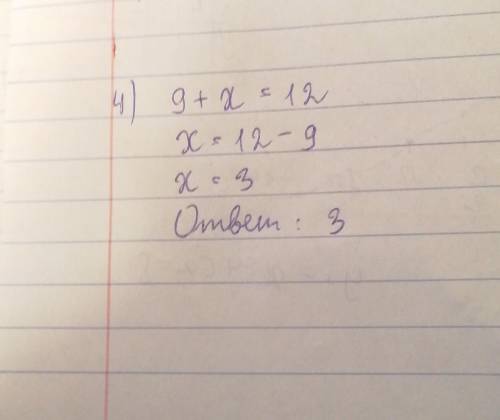 4) 9 + x = 12
x = 12 - 9
x = 3
Ответ: 3